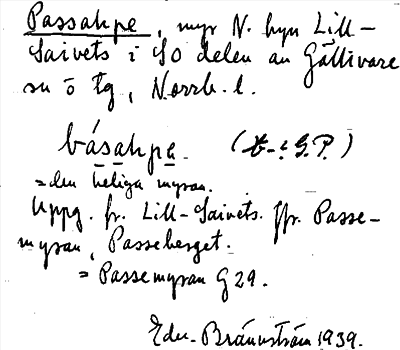 Passahpe, myr N. byn Lill-
Saivets i SO delen av Gällivare
sn o tg, Norrb. l.
básahpe.
=den heliga myran.
Uppg. fr. Lill-Saivets. Jfr. Passe-
myran, Passeberget.
= Passemyran G 29.
Edv. Brännström 1939.